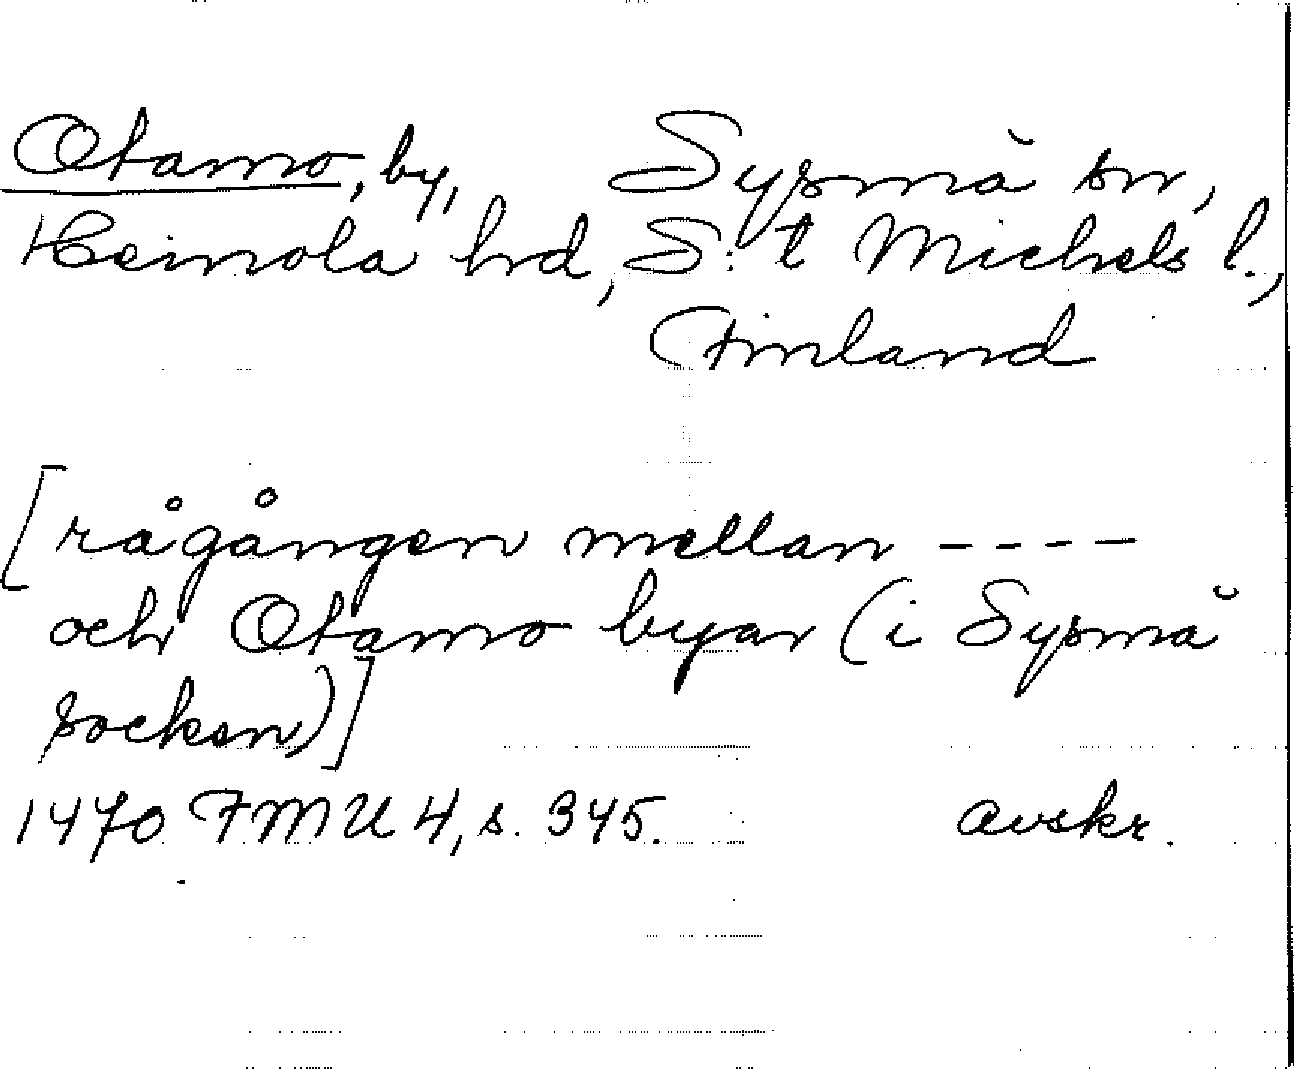 Otamo, by, Sysmä sn,
Heinola hd, S:t Michels l.,
Finland
[rågången mellan ----
och Otamo byar (i Sysmä
socken)]
1470 FMU 4, s. 345. avskr.